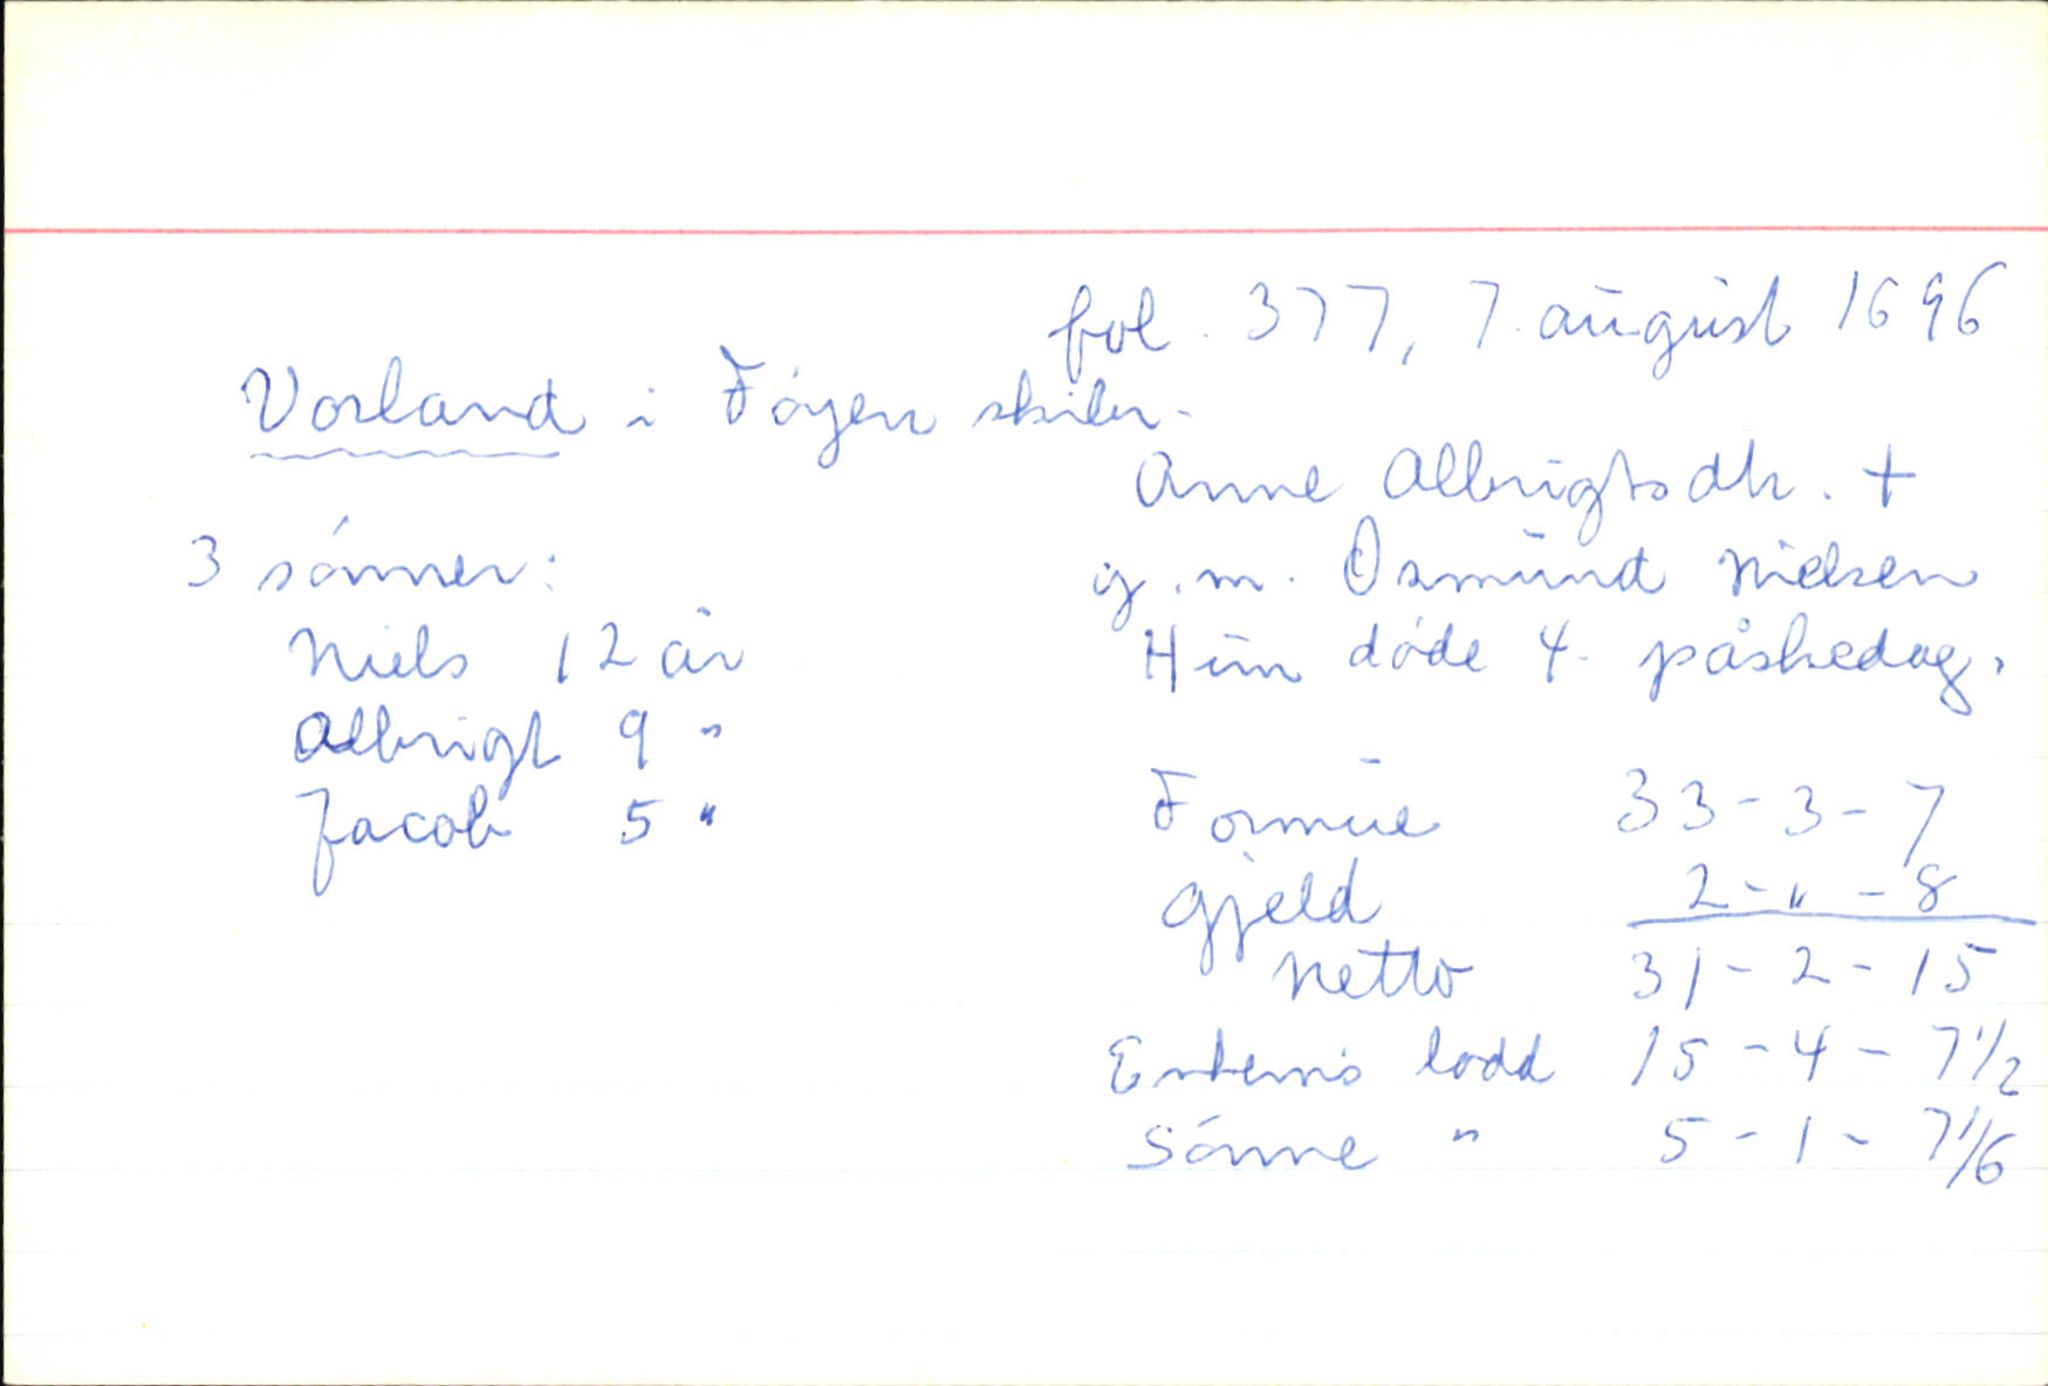 fol. 377, 7. august 1696
Vorland i Føyen skibr.
Anne Albrigtsdtr. +
g.m. Osmund Nielsen
Hun døde 4. påskedag.
3 sønner:
Niels 12 år
Albrigt 9 "
Jacob 5 "
Formue 33 - 3 - 7
Gjeld 2 - " - 8
Netto 31 - 2 - 15
lodd 15 - 4 - 7 1/2
Sønne " 5 - 1 - 7 1/6